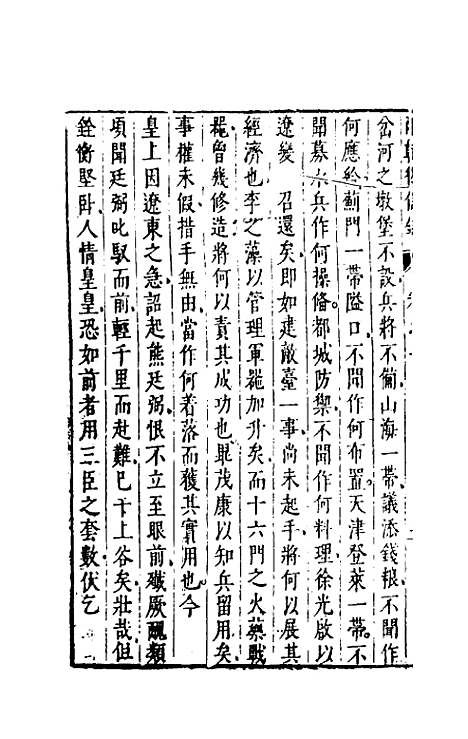 岔河之墩堡不設兵將不備山海一帶議添錢粮不聞作
何應給薊門一帶隘口不聞作何布置天津登萊一帶不
聞募水兵作何操備都城防禦不聞作何料理徐光啟以
遼變 召還矣即如建敵臺一事尚未起手將何以展其
經濟也李之藻以管理軍器加升矣而十六門之火藥戰
曾幾修造將何以責其成功也畢茂康以知兵留用矣
事權未假措手無由當作何着落而獲其實用也今
皇上因遼東之急詔起熊廷弼恨不立至眼前殲厥醜類
頃聞廷弼叱馭而前輕千里而赴難已于上谷矣壯哉但
銓衡堅卧人情皇皇恐如前者用三臣之套數伏乞